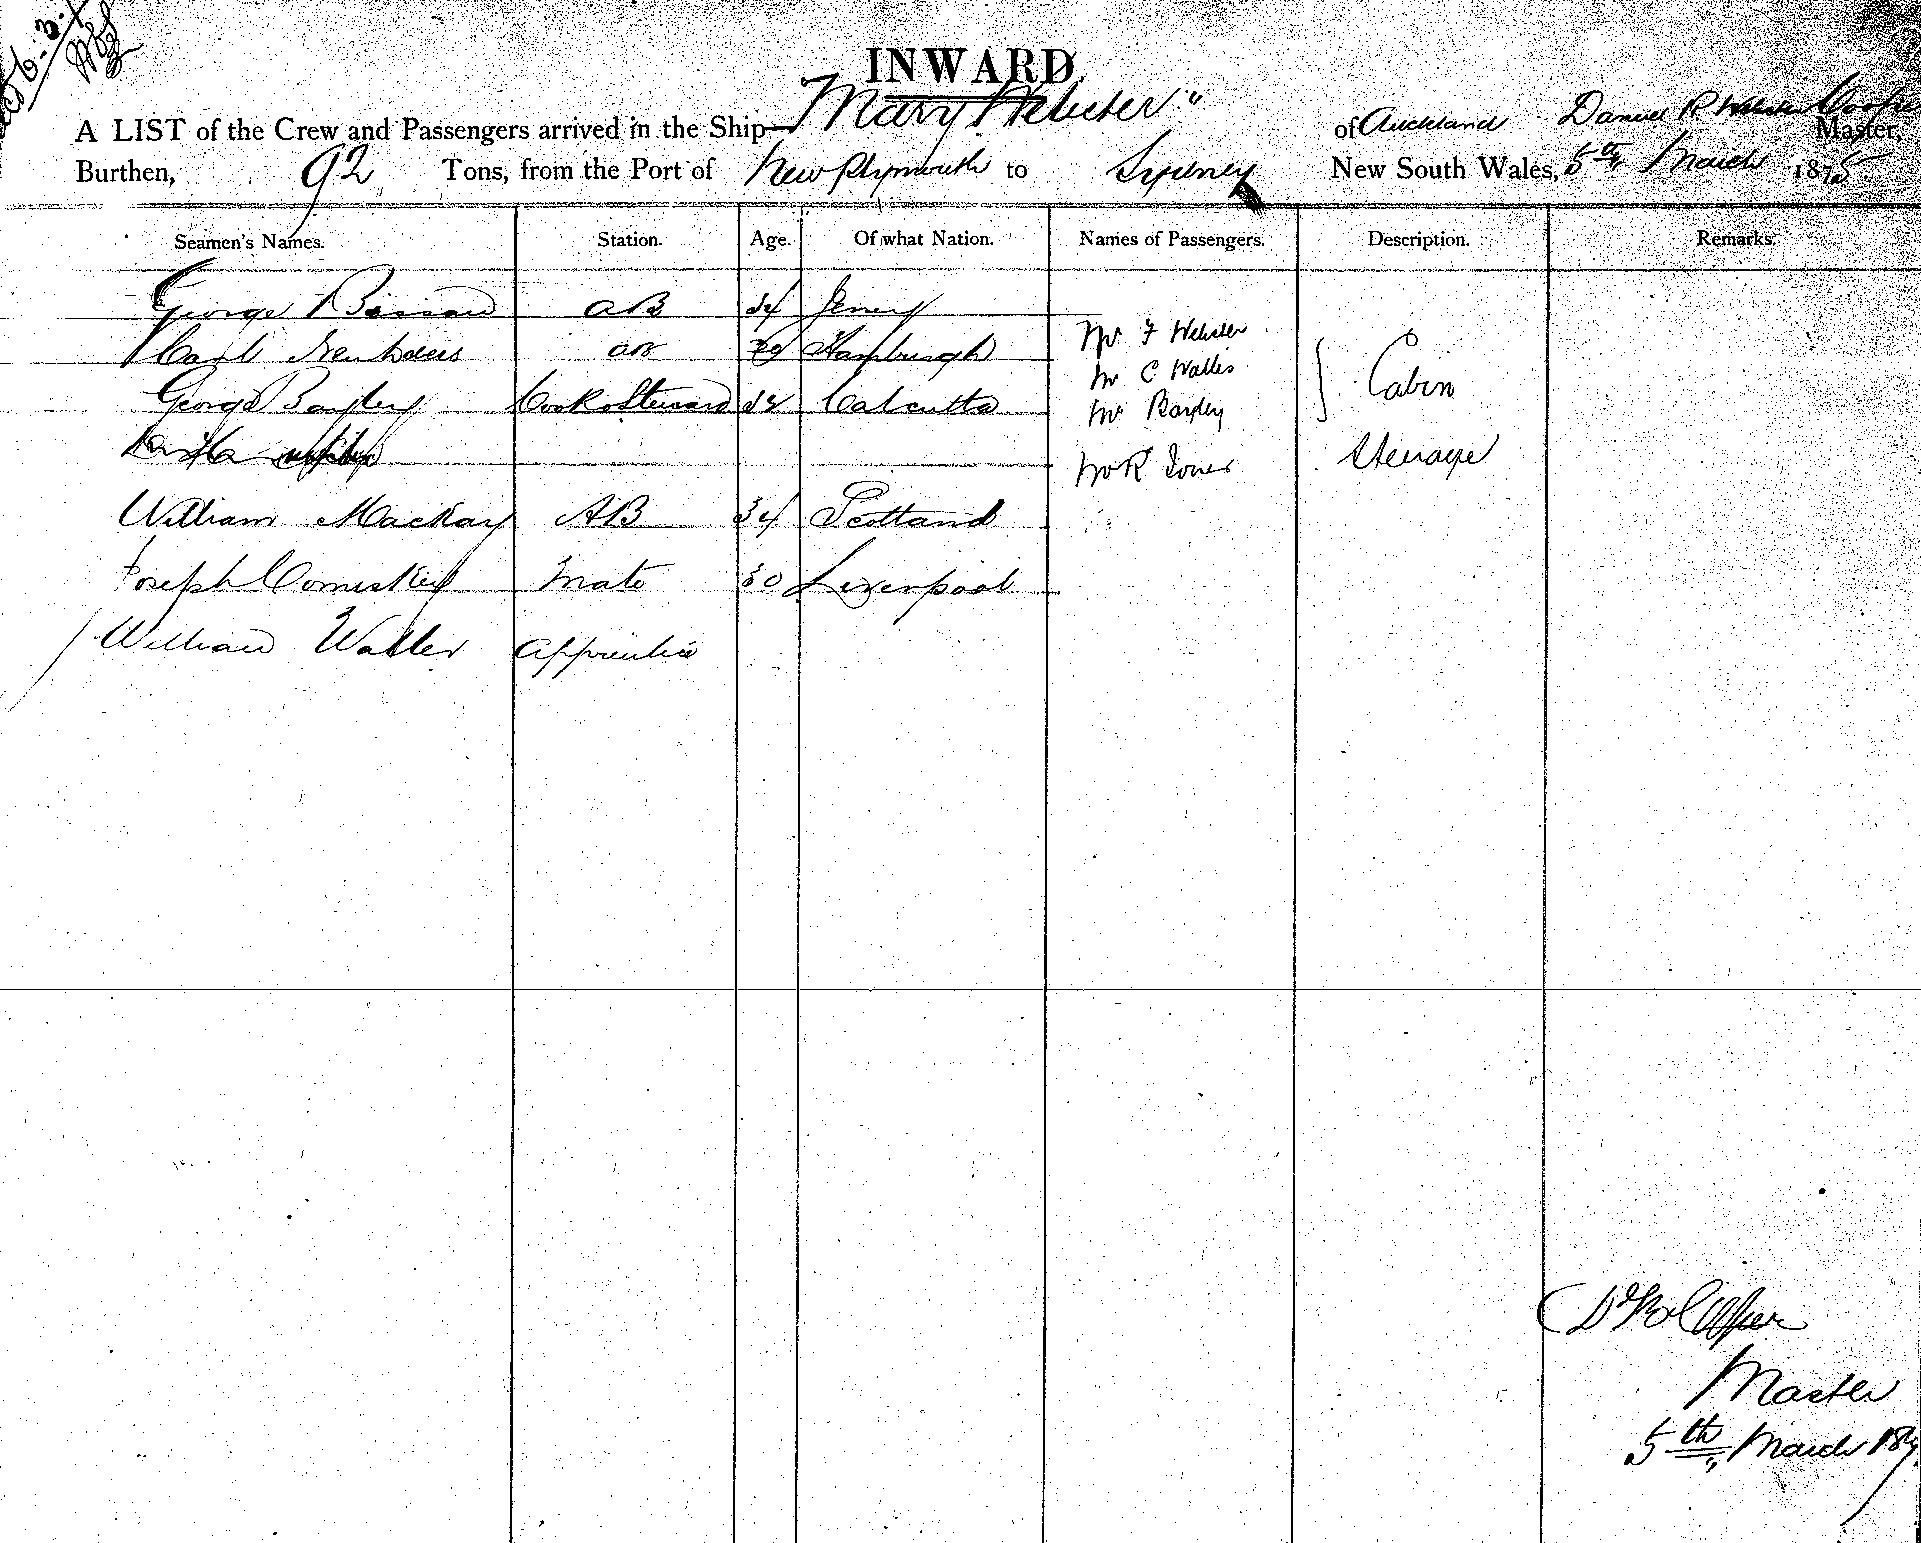 INWARD.
A LIST of the Crew and Passengers arrived in the Ship "Mary Webster" of Auckland Daniel R Cooper Master,
Burthen, 92 Tons, from the Port of New Plymouth to Sydney New South Wales, 5th March 1875
Seamen's Names. Station. Age. Of what Nation. Names of Passengers. Description. Remarks.
George AB 34 Jersey
Mr F Webster
Carl AB Hamburgh
Mr C Wallis Cabin
George Bayley Cook & Steward 32 Calcutta
Mr Bayley
Mr R Jones Steerage
William Mackay AB 34 Scotland
Joseph Comiskey Mate 30 Liverpool
William Waller Apprentice
Cooper
Master
5th March 187